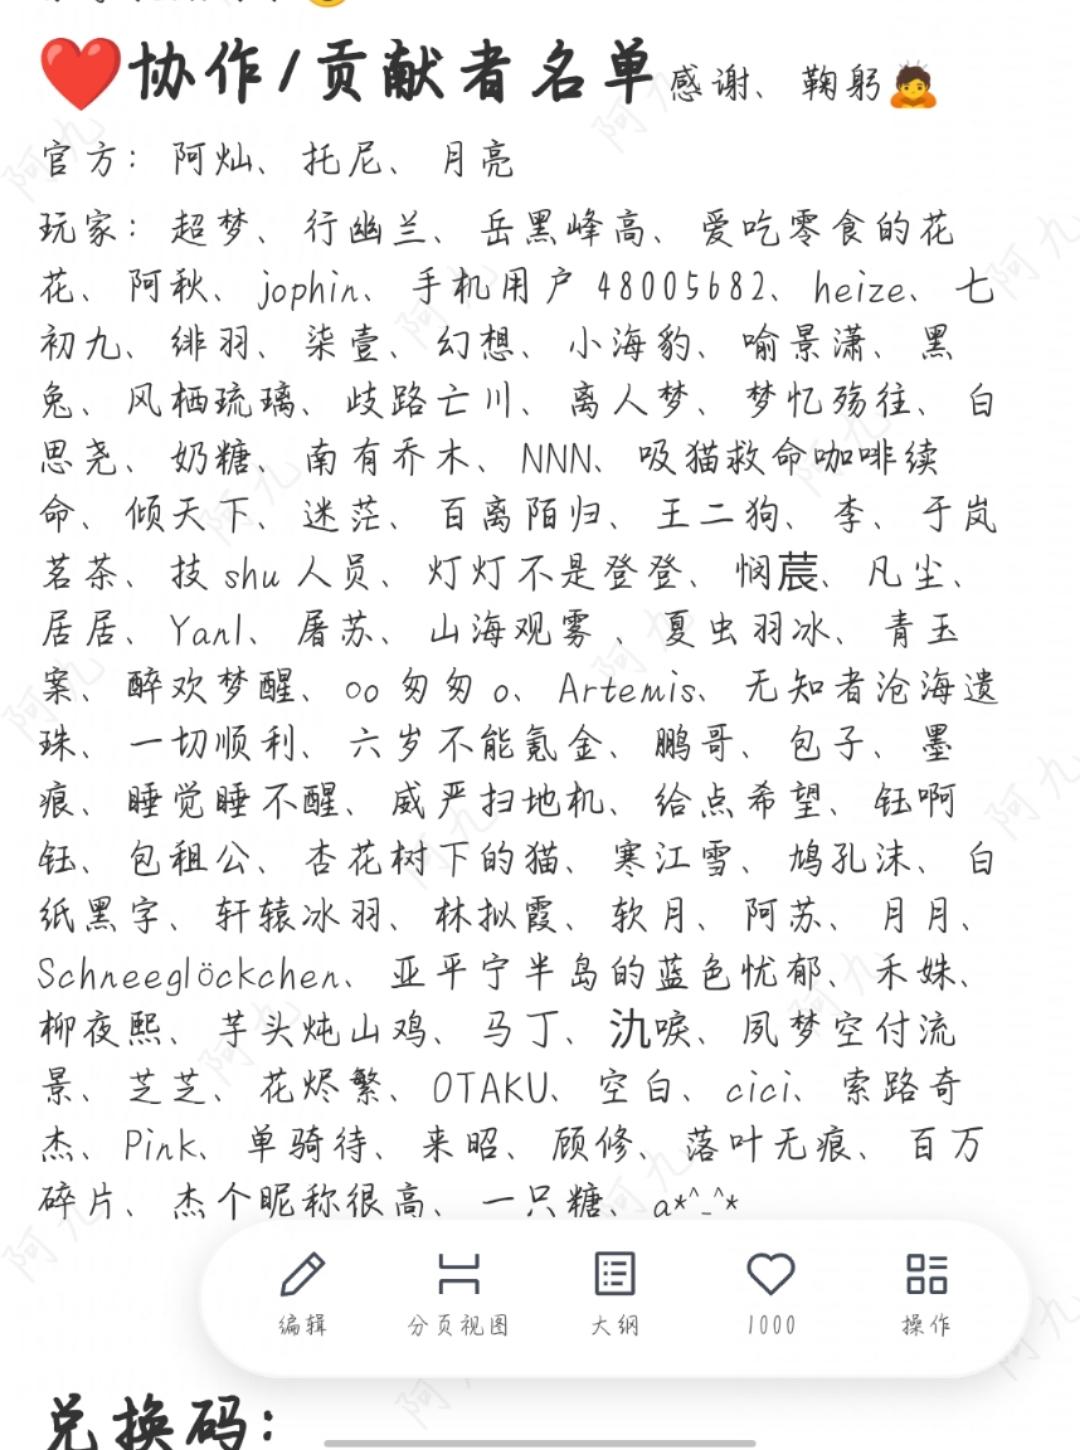 ❤️协作/贡献者名单感谢、鞠躬🙇
官方：阿灿、托尼、月亮
玩家：超梦、行幽兰、岳黑峰高、爱吃零食的花
花、阿秋、jophin、手机用户48005682、heize、七
初九、绯羽、柒壹、幻想、小海豹、喻景潇、黑
兔、风栖琉璃、歧路亡川、离人梦、梦忆殇往、白
思尧、奶糖、南有乔木、NNN、吸猫救命咖啡续
命、倾天下、迷茫、百离陌归、王二狗、李、于岚
茗茶、技shu人员、灯灯不是登登、悯莀、凡尘、
居居、Yanl、屠苏、山海观雾 、夏虫羽冰、青玉
案、醉欢梦醒、○o匆匆o、Artemis、无知者沧海遗
珠、一切顺利、六岁不能氪金、鹏哥、包子、墨
痕、睡觉睡不醒、威严扫地机、给点希望、钰啊
钰、包租公、杏花树下的猫、寒江雪、鸠孔沫、白
纸黑字、轩辕冰羽、林拟霞、软月、阿苏、月月、
Schneeglöckchen、亚平宁半岛的蓝色忧郁、禾姝、
柳夜熙、芋头炖山鸡、马丁、氿唳、夙梦空付流
景、芝芝、花烬繁、OTAKU、空白、cici、索路奇
杰、Pink、单骑待、来昭、顾修、落叶无痕、百万
碎片、杰个昵称很高、一只糖、a*^_^*
编辑
分页视图
大纲
1000
操作
兑换码：
阿九